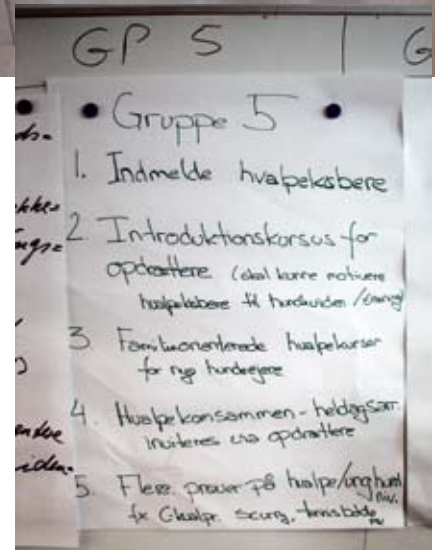 GP 5
G
Gruppe 5
1. Indmelde hvalpekøbere
2. Introduktionskursus for
opdrættere (skal kunne motivere
hvalpekøbere til hundeviden /træning)
3 Familieorienterede hvalpekurser
for nye hundeejere
4. Hvalpekomsammen - heldagsarr.
inviteres via opdrættere
5. Flere prøver på hvalpe/unghund
niv.
fx